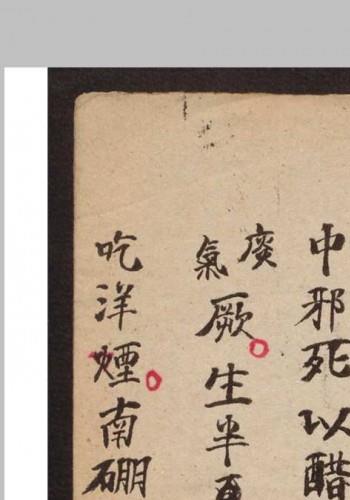 中邪死以醋
痰氣厥生半
吃洋煙南硼